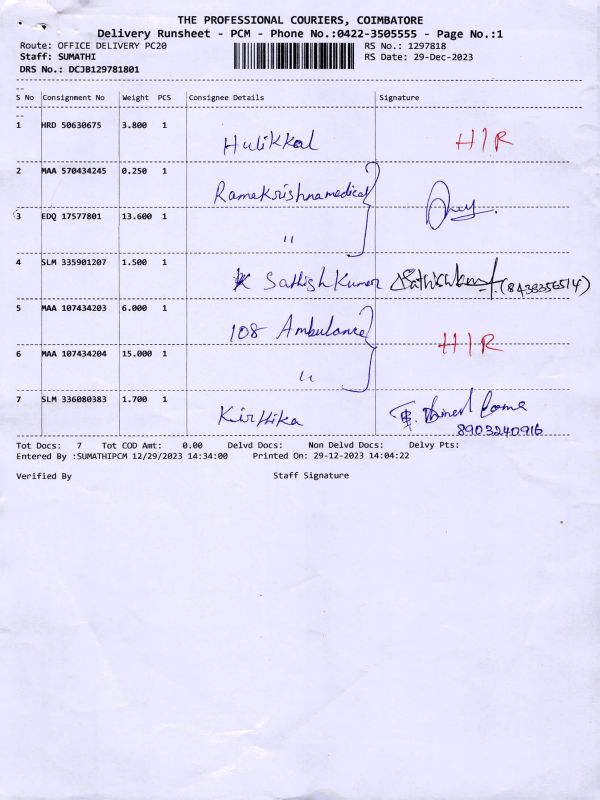 THE PROFESSIONAL COURIERS, COIMBATORE
Delivery Runsheet - PCM - Phone No.:0422-3505555 - Page No.:1
Route: OFFICE DELIVERY PC20 RS No.: 1297818
Staff: SUMATHI RS Date: 29-Dec-2023
DRS No.: DCJB129781801
S No Consignment No Weight PCS Consignee Details Signature
1 HRD 50630675 3.800 1
Hulikkal H/R
2 MAA 570434245 0.250 1
Ramakrishna medical
3 EDQ 17577801 13.600 1
"
4 SLM 335901207 1.500 1
K Sathish Kumar (8438356514)
5 MAA 107434203 6.000 1
108 Ambulance
H/R
6 MAA 107434204 15.000 1
"
7 SLM 336080383 1.700 1
Kirthika
8903240916
Tot Docs: 7 Tot COD Amt: 0.00 Delvd Docs: Non Delvd Docs: Delvy Pts:
Entered By :SUMATHIPCM 12/29/2023 14:34:00 Printed On: 29-12-2023 14:04:22
Verified By Staff Signature